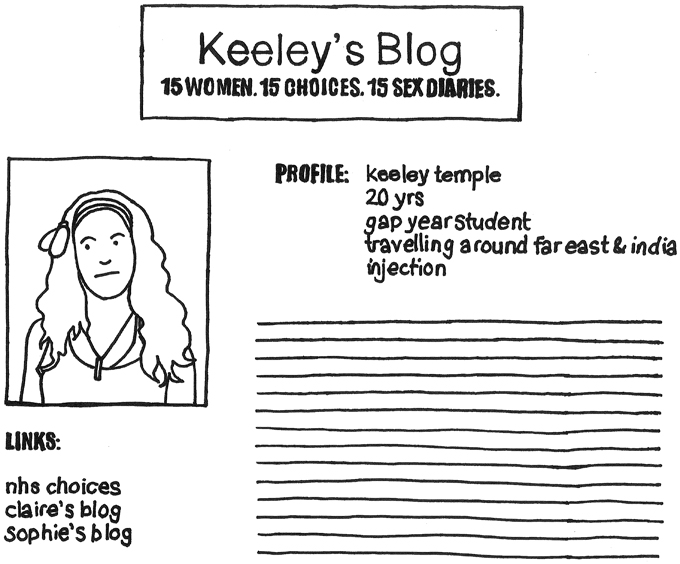 Keeley's Blog
15 WOMEN. 15 CHOICES. 15 SEX DIARIES.
PROFILE: keeley temple
20 yrs
gap year student
travelling around far east & india
injection
LINKS:
nhs choices
claire's blog
sophie's blog